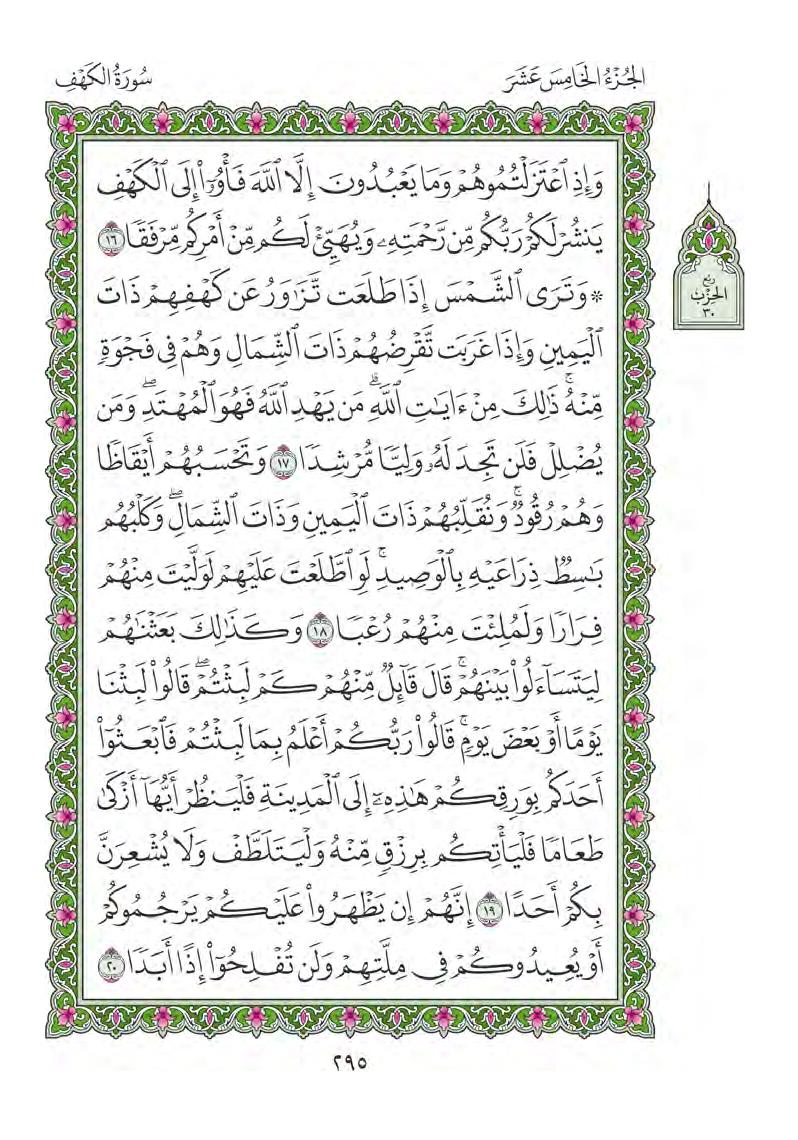 الجُزْءُ الخَامِسَ عَشَرَ
سُورَةُ الكَهْفِ
وَإِذِ ٱعْتَزَلْتُمُوهُمْ وَمَا يَعْبُدُونَ إِلَّا ٱللَّهَ فَأْوُۥٓا۟ إِلَى ٱلْكَهْفِ
يَنشُرْ لَكُمْ رَبُّكُم مِّن رَّحْمَتِهِۦ وَيُهَيِّئْ لَكُم مِّنْ أَمْرِكُم مِّرْفَقًا ١٦
۞ وَتَرَى ٱلشَّمْسَ إِذَا طَلَعَت تَّزَٰوَرُ عَن كَهْفِهِمْ ذَاتَ
ٱلْيَمِينِ وَإِذَا غَرَبَت تَّقْرِضُهُمْ ذَاتَ ٱلشِّمَالِ وَهُمْ فِى فَجْوَةٍ
مِّنْهُ ۚ ذَٰلِكَ مِنْ ءَايَـٰتِ ٱللَّهِ ۗ مَن يَهْدِ ٱللَّهُ فَهُوَ ٱلْمُهْتَدِ ۖ وَمَن
يُضْلِلْ فَلَن تَجِدَ لَهُۥ وَلِيًّا مُّرْشِدًا ١٧ وَتَحْسَبُهُمْ أَيْقَاظًا
وَهُمْ رُقُودٌ ۚ وَنُقَلِّبُهُمْ ذَاتَ ٱلْيَمِينِ وَذَاتَ ٱلشِّمَالِ ۖ وَكَلْبُهُم
بَـٰسِطٌ ذِرَاعَيْهِ بِٱلْوَصِيدِ ۚ لَوِ ٱطَّلَعْتَ عَلَيْهِمْ لَوَلَّيْتَ مِنْهُمْ
فِرَارًا وَلَمُلِئْتَ مِنْهُمْ رُعْبًا ١٨ وَكَذَٰلِكَ بَعَثْنَـٰهُمْ
لِيَتَسَآءَلُوا۟ بَيْنَهُمْ ۚ قَالَ قَآئِلٌ مِّنْهُمْ كَمْ لَبِثْتُمْ ۖ قَالُوا۟ لَبِثْنَا
يَوْمًا أَوْ بَعْضَ يَوْمٍ ۚ قَالُوا۟ رَبُّكُمْ أَعْلَمُ بِمَا لَبِثْتُمْ فَٱبْعَثُوٓا۟
أَحَدَكُم بِوَرِقِكُمْ هَـٰذِهِۦٓ إِلَى ٱلْمَدِينَةِ فَلْيَنظُرْ أَيُّهَآ أَزْكَىٰ
طَعَامًا فَلْيَأْتِكُم بِرِزْقٍ مِّنْهُ وَلْيَتَلَطَّفْ وَلَا يُشْعِرَنَّ
بِكُمْ أَحَدًا ١٩ إِنَّهُمْ إِن يَظْهَرُوا۟ عَلَيْكُمْ يَرْجُمُوكُمْ
أَوْ يُعِيدُوكُمْ فِى مِلَّتِهِمْ وَلَن تُفْلِحُوٓا۟ إِذًا أَبَدًا ٢٠
رُبع
الحِزْب
٣٠
٢٩٥